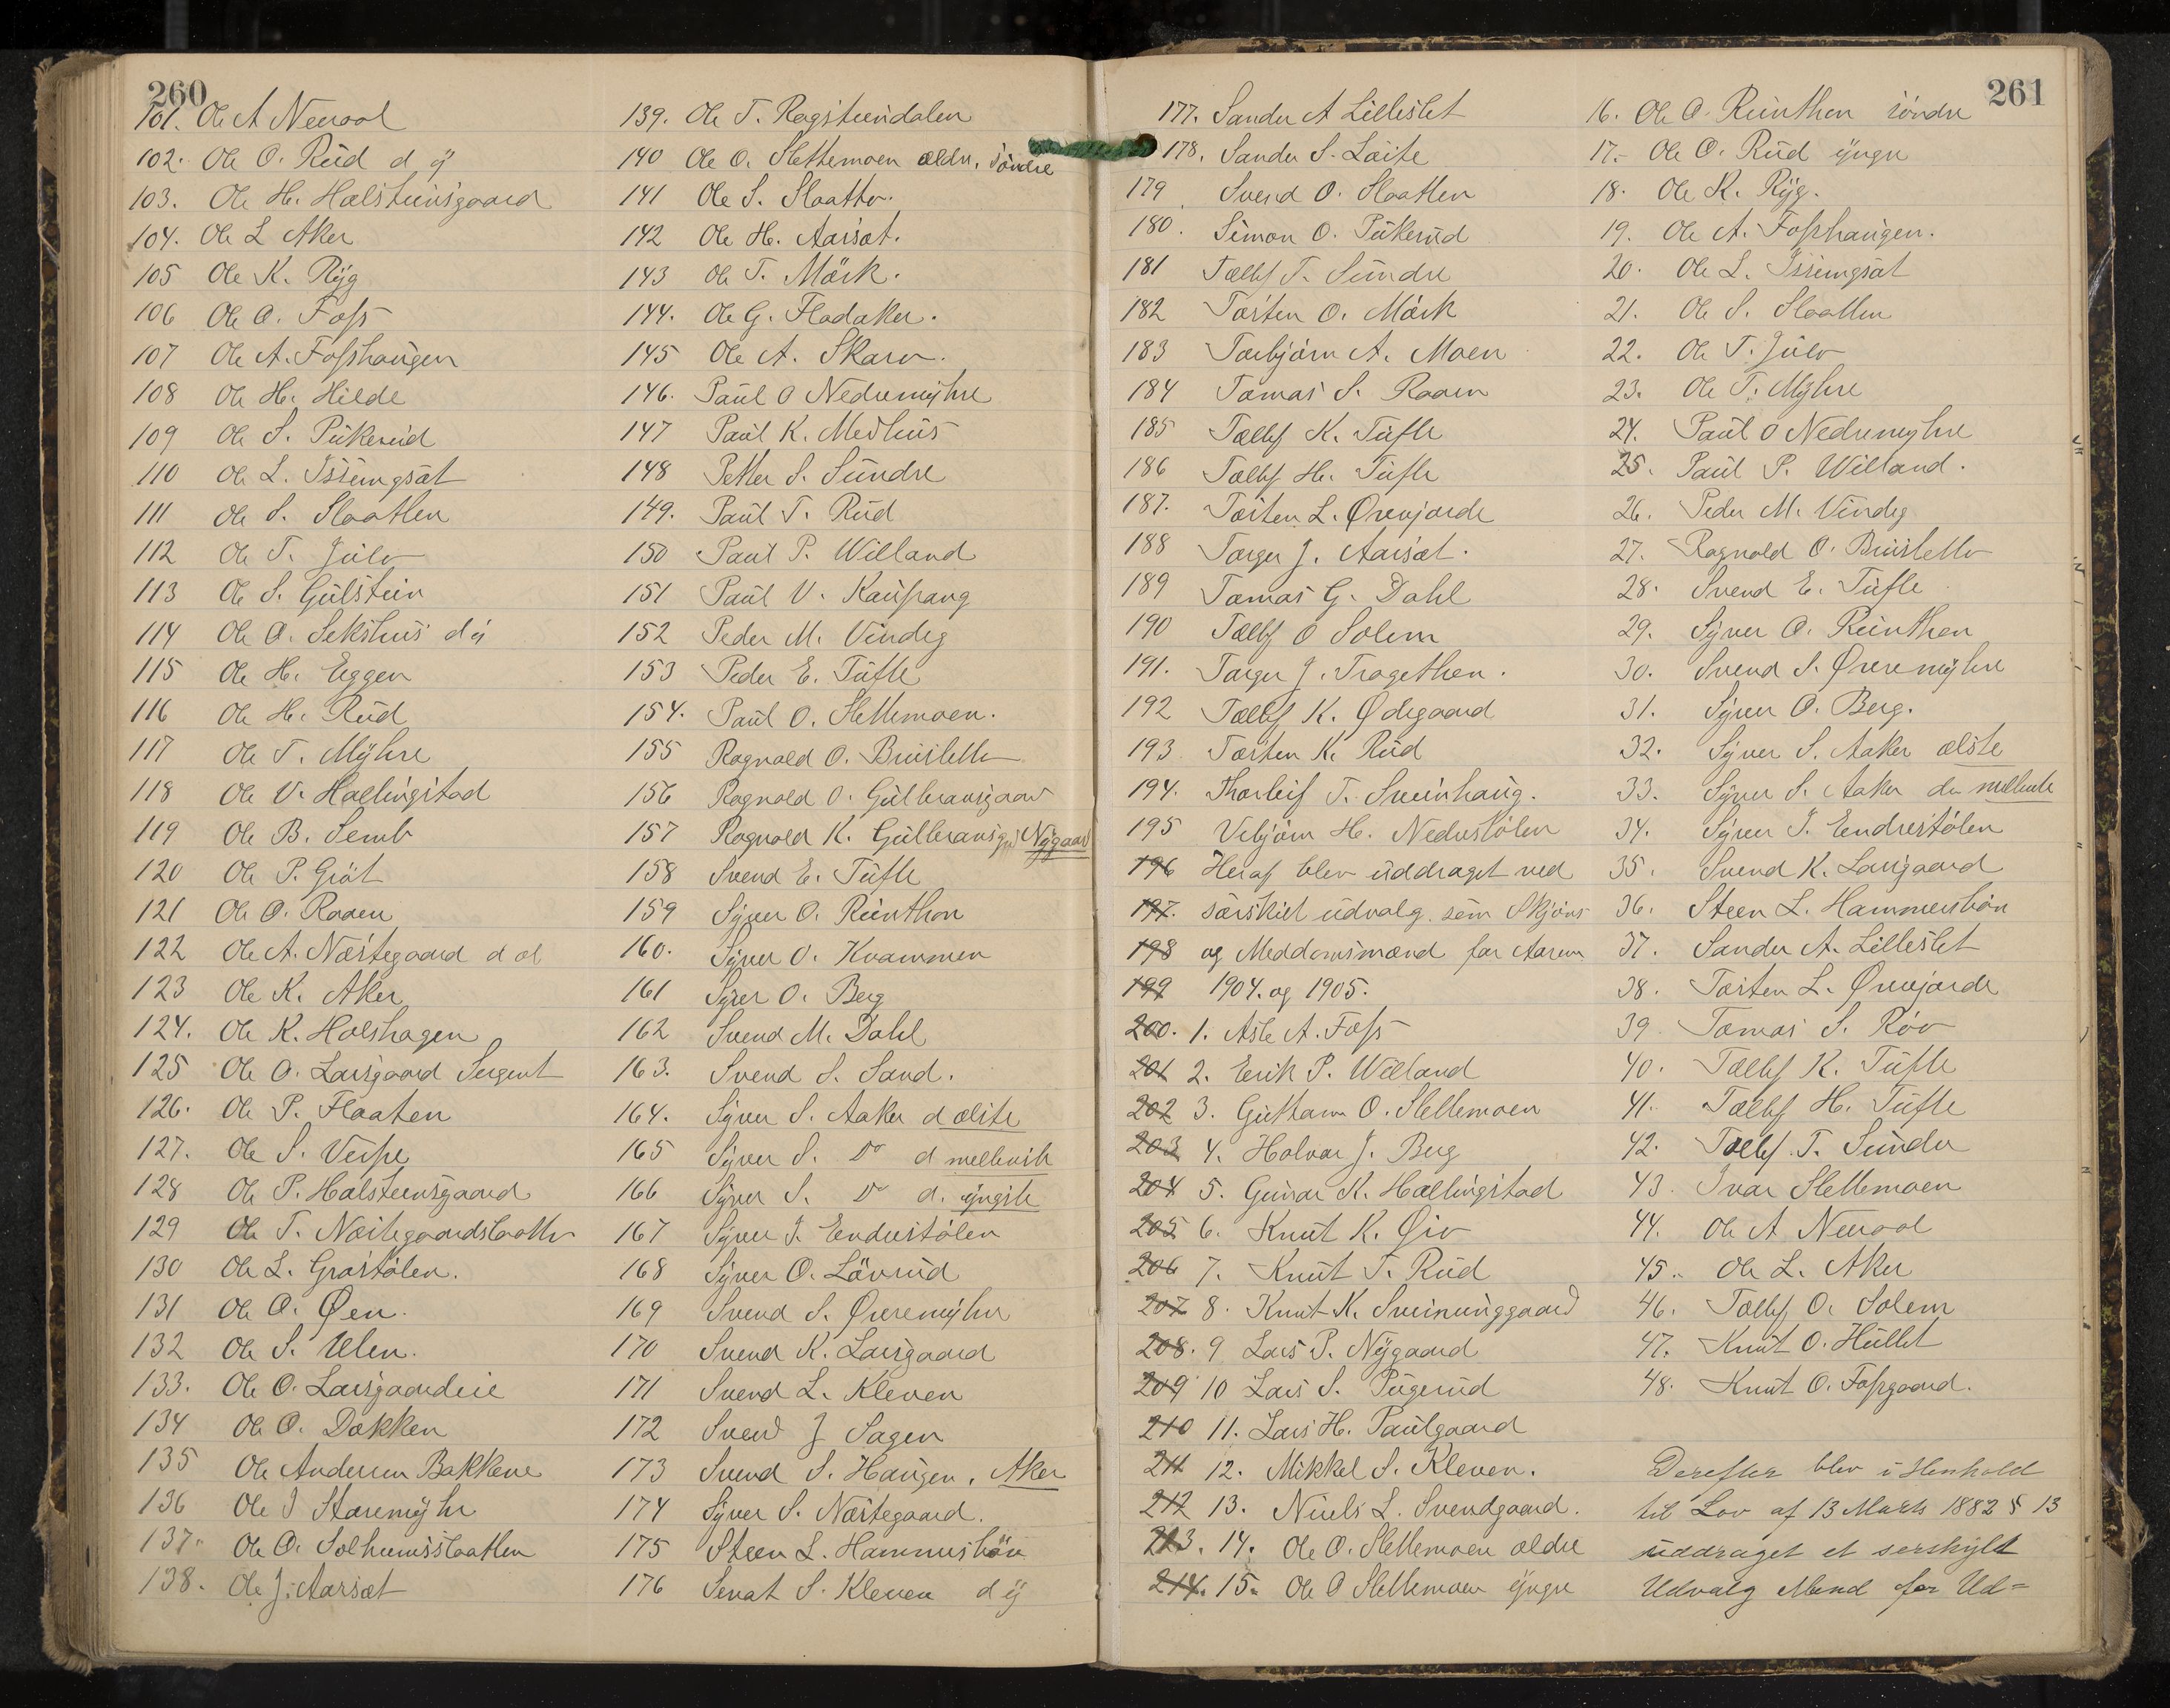 260
101. Ole A Neraal
102. Ole O. Rud d y
103. Ole H. Halsteinsgaard
104. Ole L Aker
105 Ole K. Ryg
106 Ole O. Foss
107 Ole A. Fosshaugen
108 Ole H. Hilde
109 Ole S. Pukerud
110 Ole L. Issemgsat
111 Ole S. Slaatten
112 Ole T. Julv
113 Ole S. Gulstein
114 Ole O. Sekshus d y
115 Ole H. Eggen
116 Ole H. Rud
117 Ole T. Myhre
118 Ole V. Hallingstad
119 Ole B. Semb
120 Ole P. Gröt
121 Ole O. Raaen
122 Ole A. Næstegaard d æl
123 Ole K. Aker
124. Ole K. Holshagen
125 Ole O. Larsgaard Sergent
126. Ole P. Flaaten
127. Ole S. Vespe
128 Ole P. Halsteensgaard
129 Ole T. Næstegaardslaatte
130 Ole L. Grøstølen.
131 Ole O. Øen.
132 Ole S. Ulen.
133. Ole O. Larsgaardeie
134 Ole O. Dokken
135 Ole Andersen Bakkene
136 Ole I Staremyhr
137. Ole O. Solheimsslaatten
138. Ole J. Aarsæt
139. Ole T. Ragsteindalen
140 Ole O. Slettemoen ældr. söndre
141 Ole S. Slaatto.
142 Ole H. Aarsæt.
143 Ole T. Mörk.
144. Ole G. Fladaker.
145 Ole A. Skarv.
146. Paul O Nedremyhre
147 Paul K. Medhus
148 Petter S. Sundre
149. Paul T. Rud
150 Paul P. Willand
151 Paul V. Kaupang
152 Peder M. Vindeg
153 Peder E. Tufte
154. Paul O. Slettemoen.
155 Ragnald O. Bruslette
156 Ragnald O. Gulbransgaard
157 Ragnald K. Gulbransgrd Nygaard
158 Svend E. Tufte
159 Syver O. Runthon
160. Syver O. Kvammen
161 Syver O. Berg
162 Svend M. Dahl
163. Svend S. Sand.
164. Syver S. Aaker d ælste
165 Syver S. Do d mellemste
166 Syver S. Do d. yngste
167 Syver I. Endrestölen
168 Syver O. Lövrud
169 Svend S. Øvremyhr
170 Svend K. Larsgaard
171 Svend L. Kleven
172 Svend J Sagen
173 Svend S. Haugen, Aker
174 Syver S. Næstegaard.
175 Steen L. Hammersbön
176 Senat S. Kleven d y
261
177. Sander A Lilleslet
178. Sander S. Laite
179 Svend O. Slaatten
180. Simon O. Pukerud
181 Tollef T. Sundre
182 Torsten O. Mörk
183 Torbjörn A. Moen
184 Tomas S. Raaen
185 Tollef K. Tufte
186 Tollef H. Tufte
187. Torsten L. Øvrejorde
188 Torger J. Aarsæt.
189 Tomas G. Dahl
190 Tollef O Solem
191. Torger J. Tragethon.
192 Tollef K. Ødegaard
193 Torsten K. Rud
194. Thorleif T. Sveinhaug.
195 Vebjörn H. Nedrestölen
196 Heraf blev uddraget ved
197. særskilt udvalg som Skjöns
198 og Meddomsmænd for Aarene
199 1904. og 1905.
200. 1. Asle A. Foss
201 2. Erik P. Willand
202 3. Guttorm O. Slettemoen
203 4. Halvor J. Berg
204 5. Gunar K. Hallingstad
205 6. Knut K. Øiv
206 7. Knut T. Rud
207 8. Knut K. Sveinunggaard
208. 9 Lars P. Nygaard
209 10 Lars S. Pugerud
210 11. Lars H. Paulgaard
211 12. Mikkel S. Kleven.
212 13. Niels L. Svendgaard.
213. 14. Ole O. Slettemoen ældre
214. 15. Ole O Slettemoen yngre
16. Ole O. Runthon söndre
17. Ole O. Rud yngre
18. Ole K. Ryg.
19. Ole A. Fosshaugen.
20. Ole L. Issemgsat
21. Ole S. Slaatten
22. Ole T. Julv
23. Ole T. Myhre
24. Paul O Nedremyhre
25. Paul P. Willand.
26. Peder M. Vindeg
27. Ragnald O. Bruslette
28. Svend E. Tufte
29. Syver O. Runthon
30. Svend S. Øvremyhre
31. Syver O. Berg.
32. Syver S. Aaker ælste
33. Syver S. Aaker den mellemste
34. Syver I. Endrestölen
35. Svend K. Larsgaard
36. Steen L. Hammersbön
37. Sander A. Lilleslet
38. Torsten L. Øvrejorde
39. Tomas S. Röv
40. Tollef K. Tufte
41. Tollef H. Tufte
42. Tollef T. Sundre
43. Ivar Slettemoen
44. Ole A Neraal
45. Ole L. Aker
46. Tollef O. Solem
47. Knut O. Hullet
48. Knut O. Fossgaard.
Derefter blev i Henhold
til Lov af 13 Marts 1882 § 13
uddraget et serskyldt
Udvalg Mend for Ud=